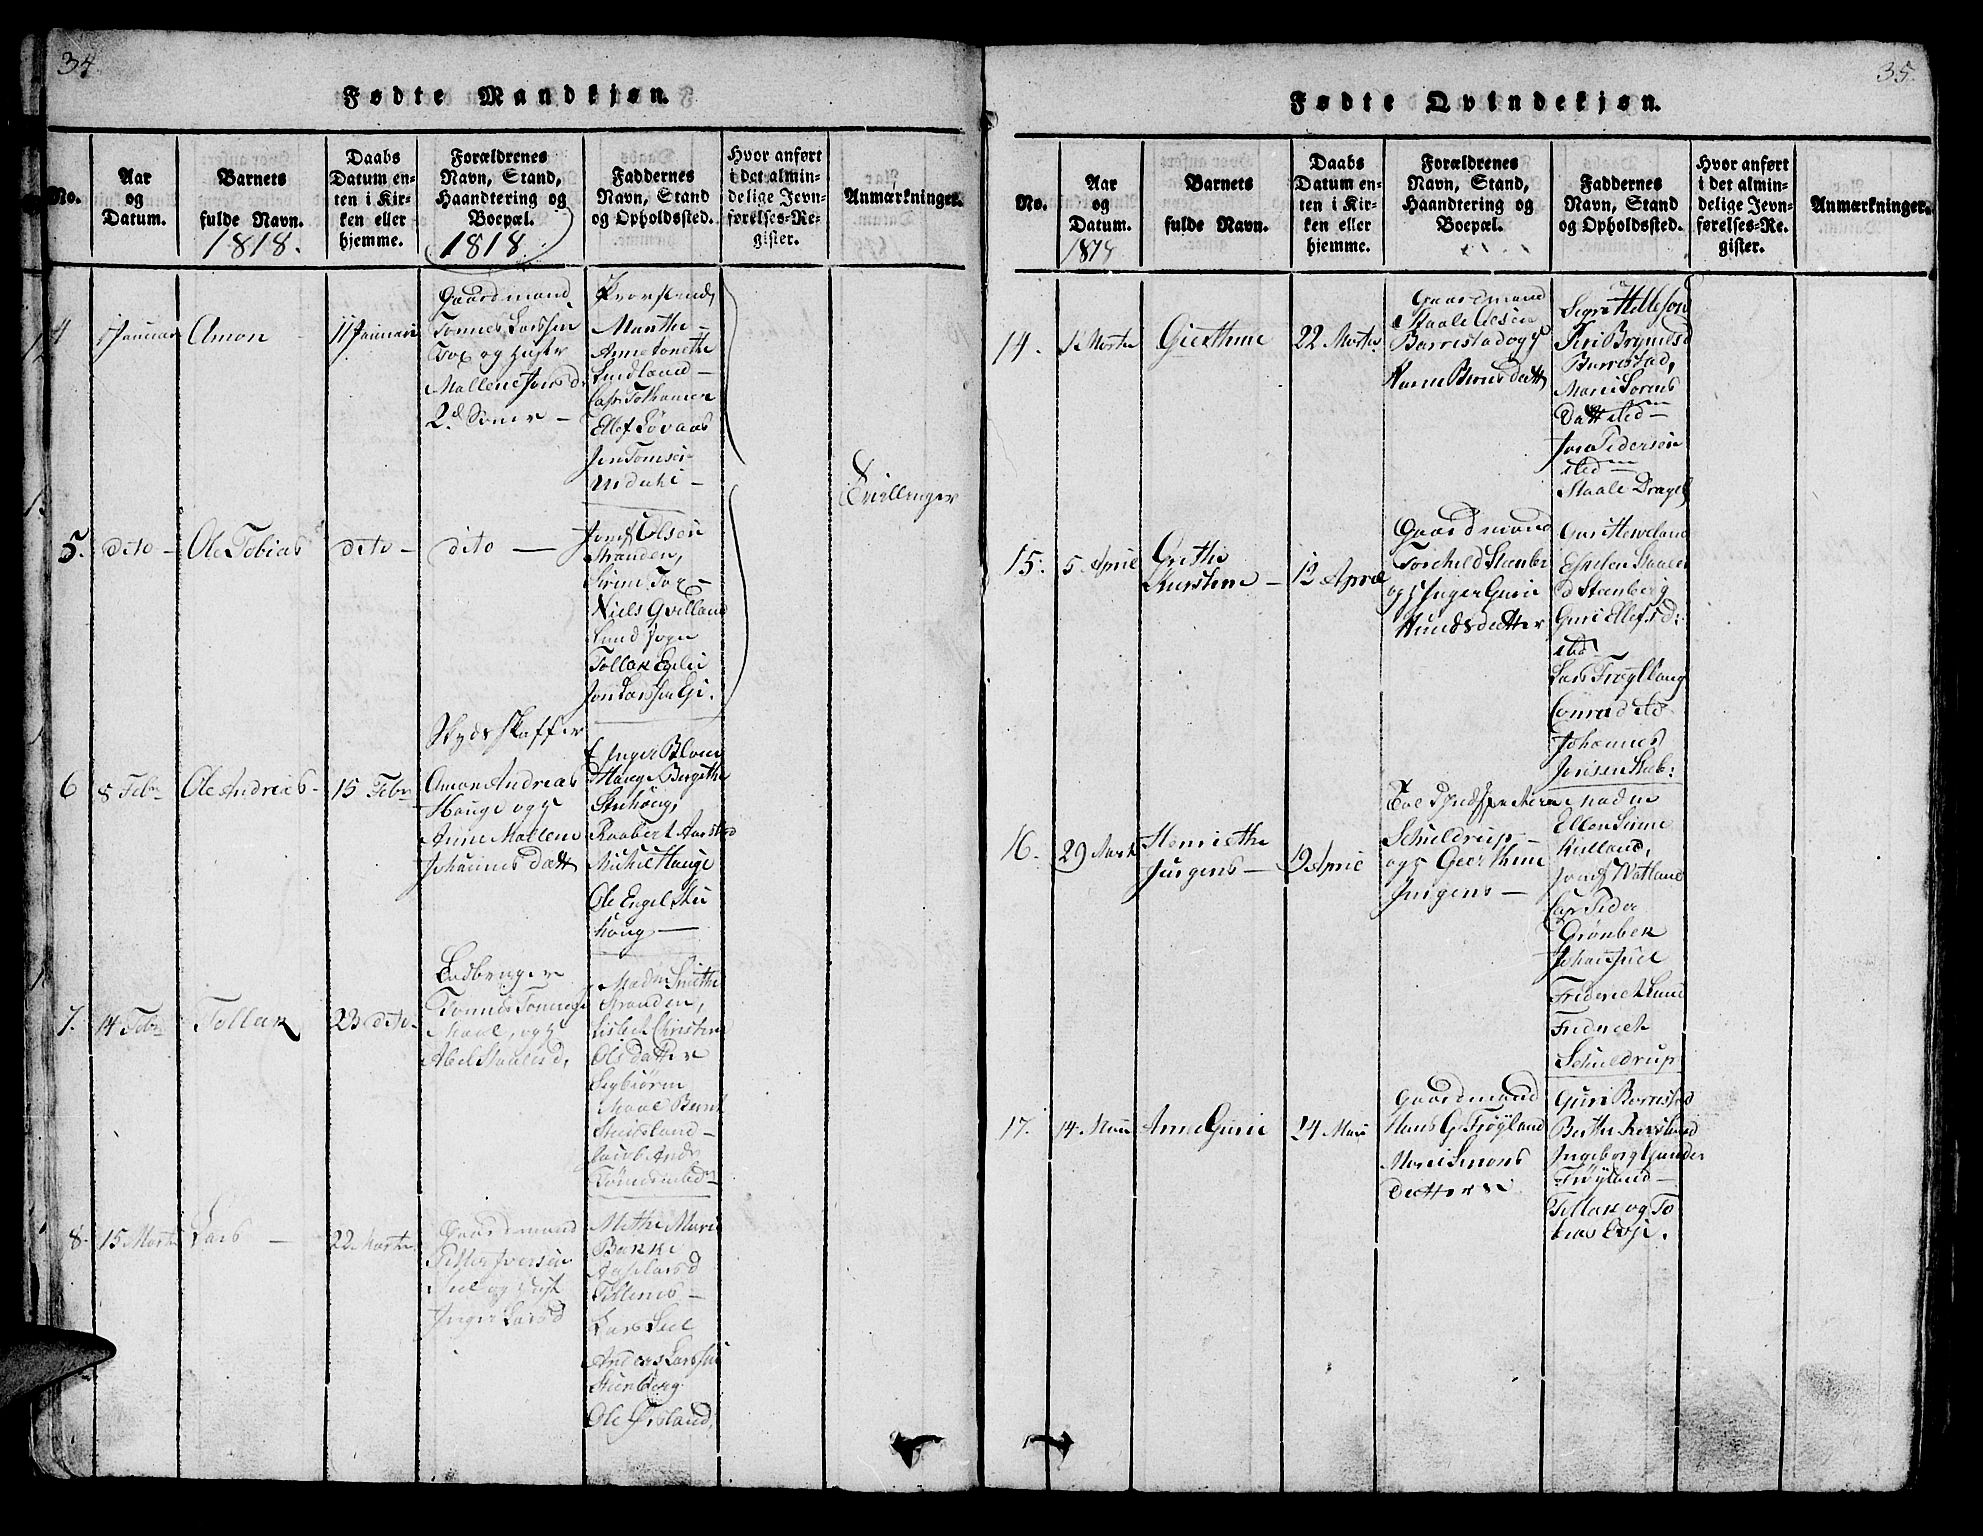 34.
Fødte Mandkjøn.
No.
Aar
og
Datum.
Barnets
fulde Navn.
1818.
Daabs
Datum en-
ten i Kir-
ken eller
hjemme.
Forældrenes
Navn, Stand,
Haandtering og
Boepæl.
1818
Faddernes
Navn, Stand
og Opholdssted.
Hvor anført
i det almin-
delige Jevn-
førelses-Re-
gister.
Anmærkninger.
4
1 Januar
Amon
11 Januari
Gaardmand
Tonnes Larssen
Tox og Hustr
Mallene Jonsd
2d Soner —
Provstinde
Marthe —
Anne Tonette
Lundland —
Ellef Løvaas
Jen Tomsen
Tvillinger
5.
dito —
Ole Tobias
dito —
dito —
Jons Olsen
Stranden,
Sirene Tox —
Niels Qvilland
Tollak Eglie
Jon Larssen Egi.
6
8 Febr
Ole Andreas —
15 Febr
Skydsskaffer
Amon Andreas
Hauge og H
Anne Mallene
Johannes datt
Inger Bloen
Hauge Bergithe
Stenhoug,
Raabert Aarstad
Michel Hauge
Ole Engel Sten
houg —
7.
14 Febr
Tollak
23 dito
Tonnes Tonnese
Maal, og H
Abel Staalesd,
Madm Smithe
Stranden,
Lisbeth Christine
Olsdatter
Sigbiørn
Maal Bernt
Steensland —
Jacob Andr
8.
15 Marte
Lars —
22 Marte
Gaardmand
Petter Iversen
Siel og Hust
Inger Larsd
Mette Marie
Bakke
Lars Siel
Anders Larssen
Steenberg
Ole Ørsland,
35.
Fødte Qvindekjøn.
No.
Aar
og
Datum.
1818
Barnets
fulde Navn.
Daabs
Datum en-
ten i Kir-
ken eller
hjemme.
Forældrenes
Navn, Stand,
Haandtering og
Boepæl.
Faddernes
Navn, Stand
og Opholdssted.
Hvor anført
i det almin-
delige Jevn-
førelses-Re-
gister.
Anmærkninger.
14.
1 Marte
Gierthine
22 Martes
Gaardmand
Staale Olsen
Barrestad og H
Karen Berns Datt
Segri Hellesen
Siri Brynelsd
Barrestad,
Marie Sorens
Datt sted —
Jon Pedersen
sted —
Staale Drags
15.
5 April
Grethe
Kirstine —
12 April
Gaardmand
Torchild Steenbe
og H Inger Gurie
Hundsdatter
Guri Heveland
Espelen Staales
d Steenberg
Guri Ellefsd:
sted
Lars Frøylland
Conrad sted
Johannes
Jorisen Stab:
16.
29 Mark
Henriethe
Jurgens —
19 April
Schieldrup —
og H Geerthine
Jurgens —
Madm
Ellen Sirine
Rulland,
Jons Watland
Cap Peder
Grønbek
Johan Juel
Friderich Lund
Frederich
Schieldrup
17.
14 Mai
Anne Gurie
24 Mai
Gaardmand
Hans G Frøyland
Marie Simons
Datter
Guri Barrestad
Berthe Revsland
Ingeborg Gunder
Frøyland —
Tollak og To
bias Eeje.